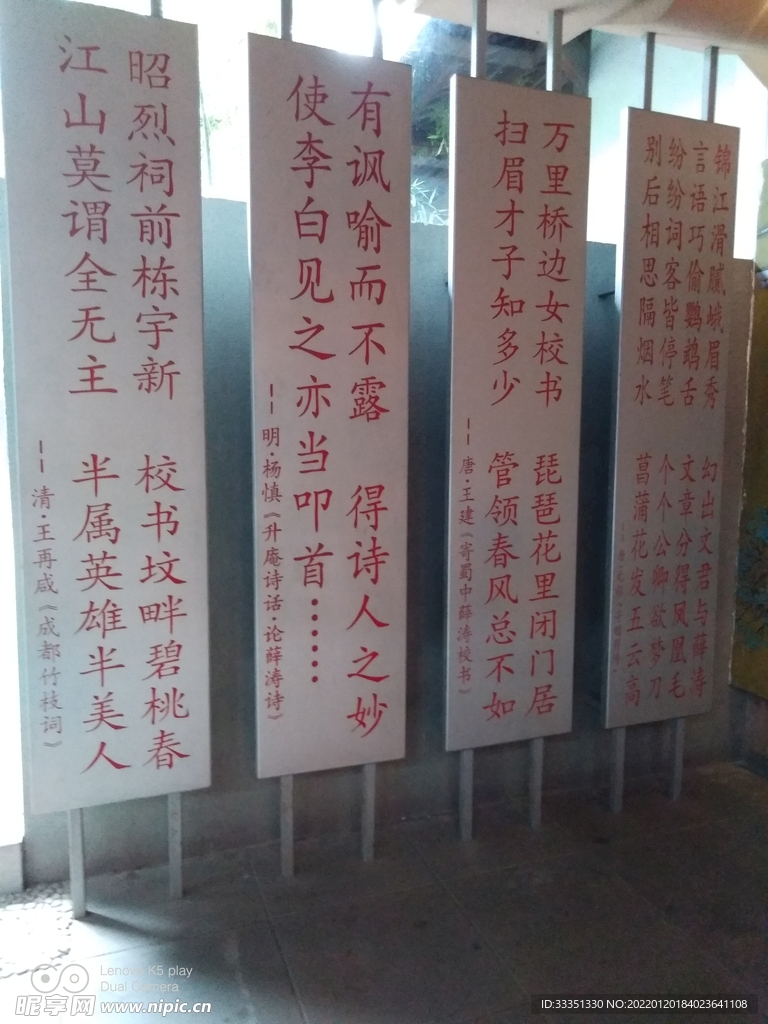 锦江滑腻峨眉秀 幻出文君与薛涛
言语巧偷鹦鹉舌 文章分得凤凰毛
纷纷词客皆停笔 个个公卿欲梦刀
别后相思隔烟水 菖蒲花发五云高
万里桥边女校书 琵琶花里闭门居
扫眉才子知多少 管领春风总不如
--唐·王建《寄蜀中薛涛校书》
有讽喻而不露 得诗人之妙
使李白见之亦当叩首······
--明·杨慎《升庵诗话·论薛涛诗》
昭烈祠前栋宇新 校书坟畔碧桃春
江山莫谓全无主 半属英雄半美人
--清·王再咸《成都竹枝词》
Lenovo K5 play
Dual Camera
昵享网 www.nipic.cn
ID:33351330 NO:20220120184023641108